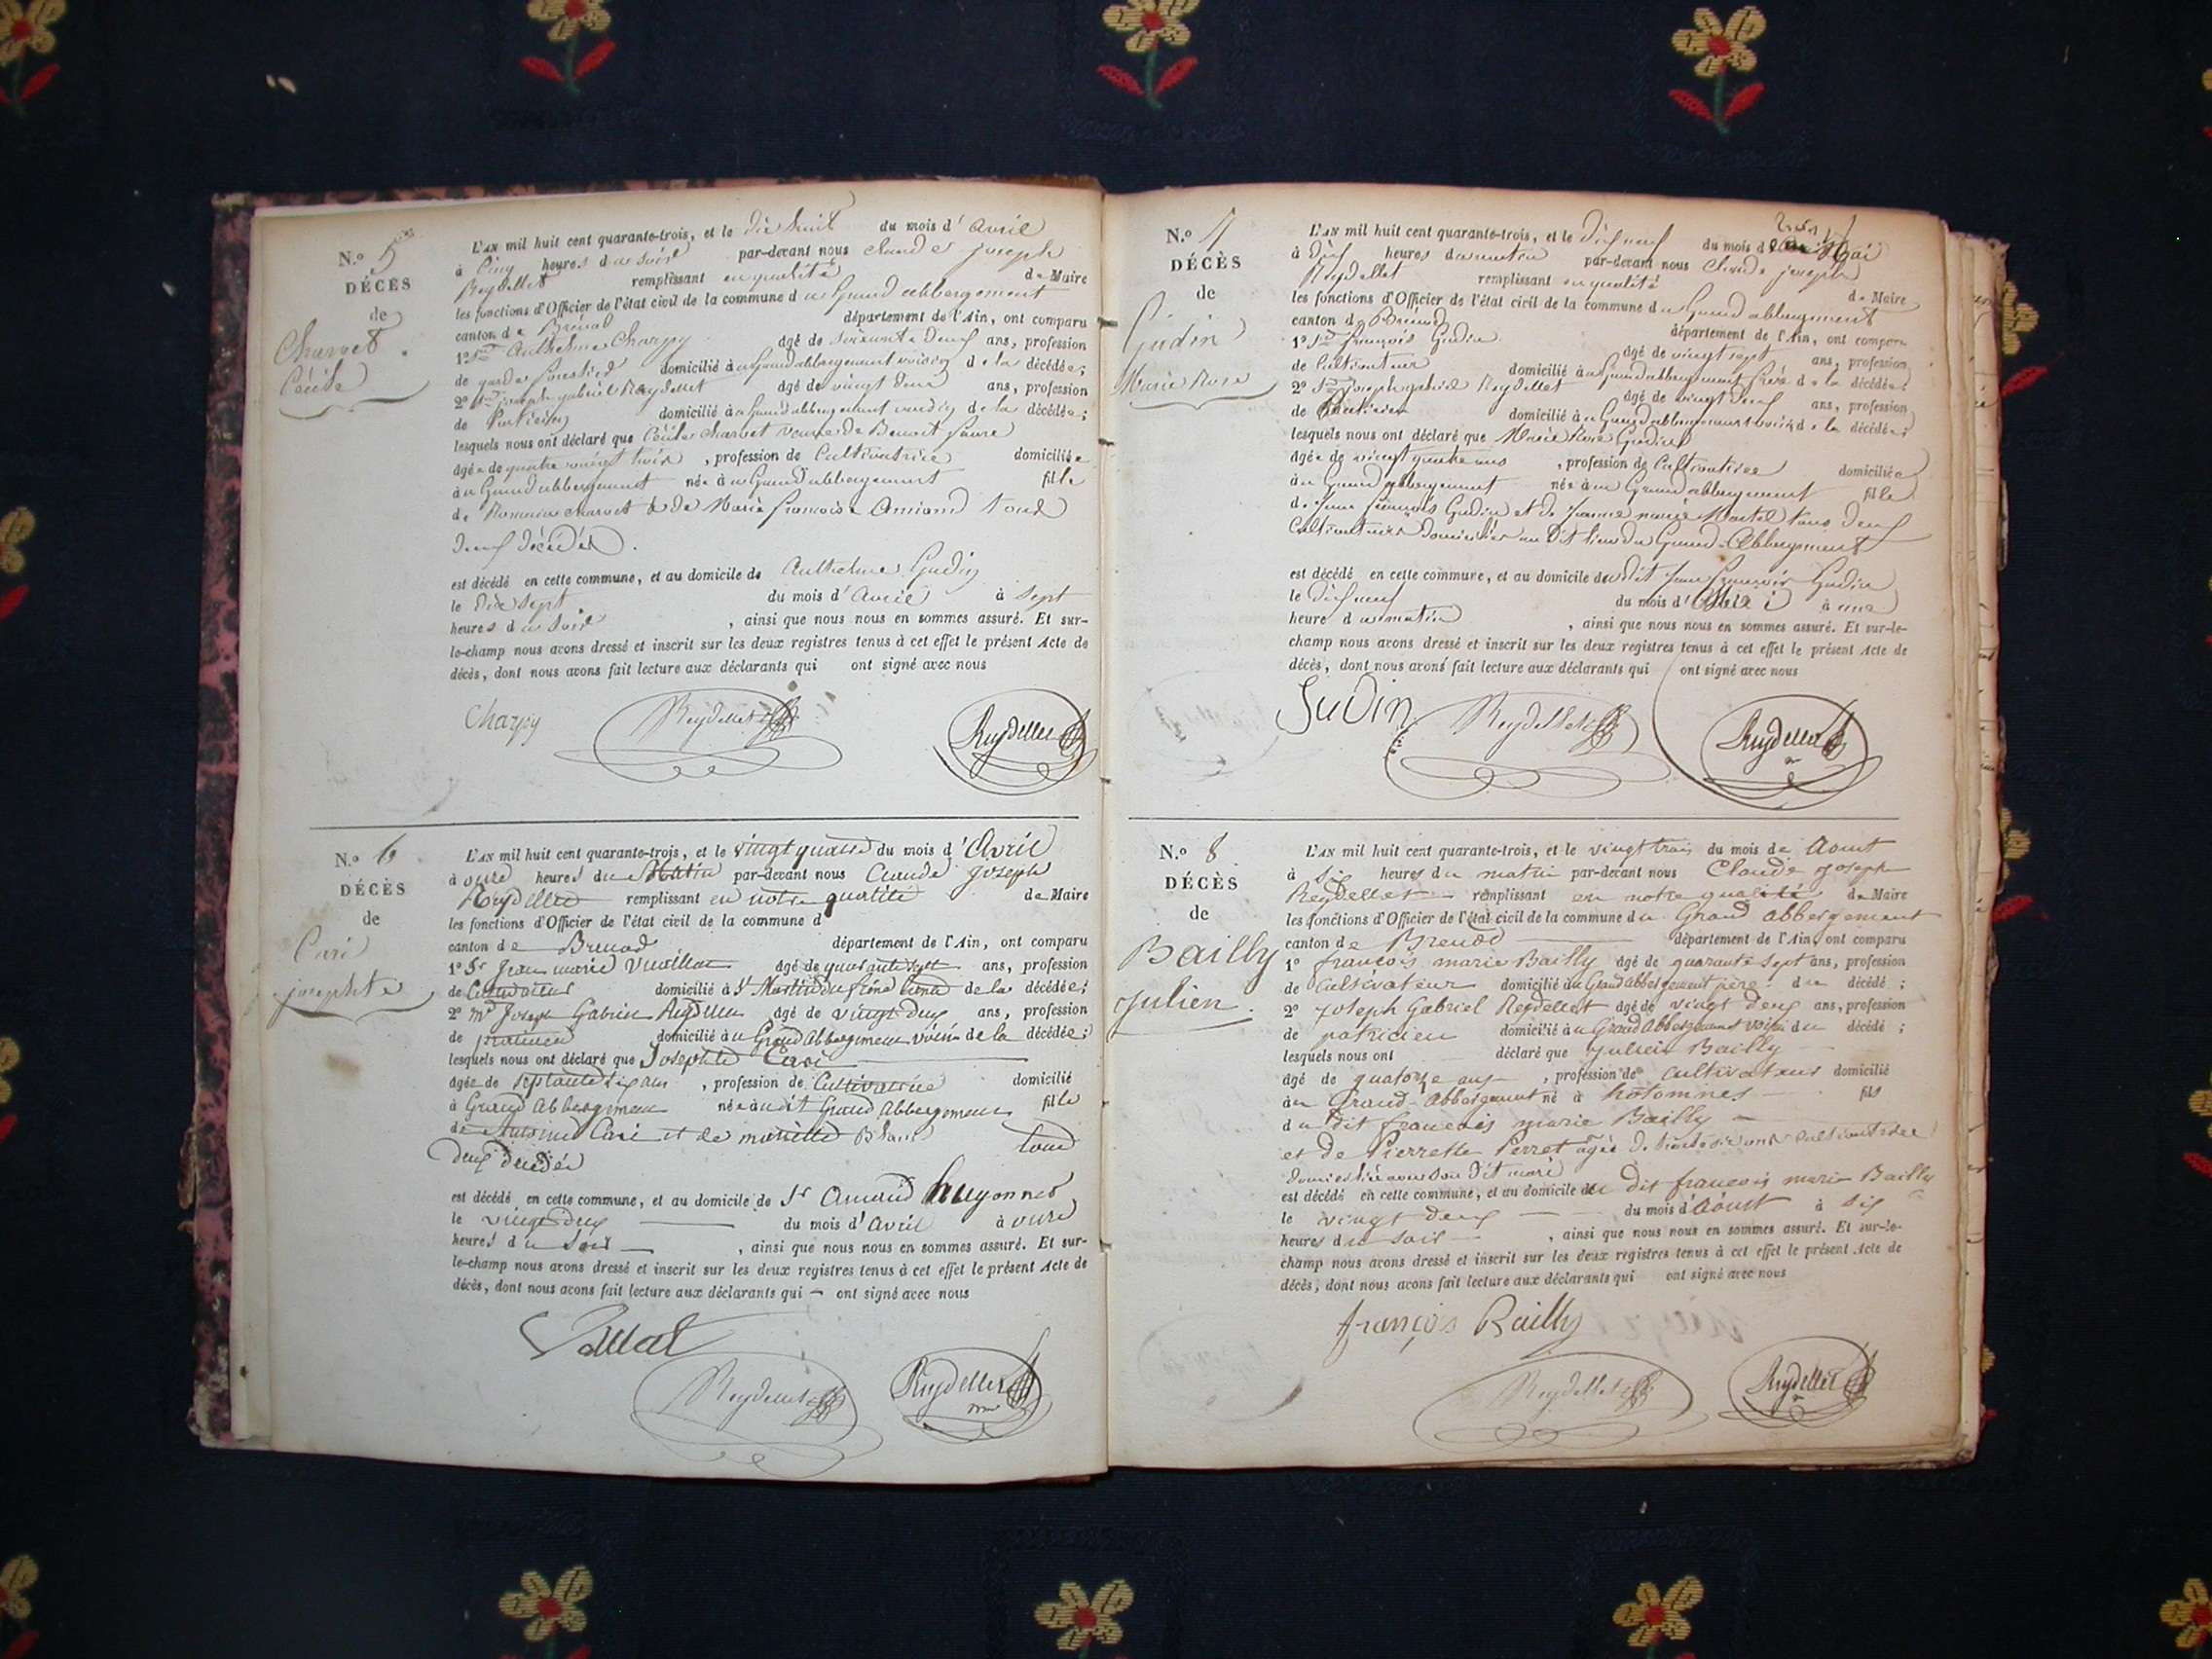 N.o 5
DÉCÈS
de
Charvet
Cécile
L'AN mil huit cent quarante-trois, et le dix huit du mois d' avril
à Cinq heures du soir par-devant nous Claude joseph
Reydellet remplissant en qualité de Maire
les fonctions d'Officier de l'état civil de la commune du Grand abbergement
canton de Brénod département de l'Ain, ont comparu
1o Anthelme Charpy âgé de soixante deux ans, profession
de garde forestier domicilié au Grand abbergement voisin de la décédée;
2o joseph gabriel Reydellet âgé de vingt deux ans, profession
de domicilié au Grand abbergement voisin de la décédée;
lesquels nous ont déclaré que Cécile Charvet veuve de Benoit
âgée de quatre vingt trois , profession de Cultivatrice domiciliée
au Grand abbergement née au Grand abbergement fille
de Romain Charvet & de Marie françoise tous
deux décédés.
est décédé en cette commune, et au domicile de Anthelme Gudin
le dix sept du mois d' avril à sept
heures du soir , ainsi que nous nous en sommes assuré. Et sur-
le-champ nous avons dressé et inscrit sur les deux registres tenus à cet effet le présent Acte de
décès, dont nous avons fait lecture aux déclarants qui ont signé avec nous
Charpy Reydellet Reydellet
N.o 6
DÉCÈS
de
Cari
josephte
L'AN mil huit cent quarante-trois, et le vingt quatre du mois d' Avril
à onze heures du Matin par-devant nous Claude Joseph
Reydellet remplissant en notre qualité de Maire
les fonctions d'Officier de l'état civil de la commune d
canton de Brenod département de l'Ain, ont comparu
1o Sr Jean marie âgé de quarante sept ans, profession
de Cultivateur domicilié à St Martin du frêne de la décédée;
2o Mr Joseph Gabriel Reydellet âgé de vingt deux ans, profession
de praticien domicilié au Grand Abbergement voisin de la décédée;
lesquels nous ont déclaré que Josephte Cari
âgée de septante six ans , profession de Cultivatrice domicilié
à Grand Abbergement née au dit Grand Abbergement fille
de Antoine Cari et de tous
deux décédés
est décédé en cette commune, et au domicile de Sr Amand huyonnet
le vingt deux du mois d' avril à onze
heures du soir , ainsi que nous nous en sommes assuré. Et sur-
le-champ nous avons dressé et inscrit sur les deux registres tenus à cet effet le présent Acte de
décès, dont nous avons fait lecture aux déclarants qui ont signé avec nous
Reydellet Reydellet
N.o 7
DÉCÈS
de
Gudin
Marie Rose
L'AN mil huit cent quarante-trois, et le dix neuf du mois de Mai
à dix heures du matin par-devant nous Claude joseph
Reydellet remplissant en qualité de Maire
les fonctions d'Officier de l'état civil de la commune du Grand abbergement
canton de Brénod département de l'Ain, ont comparu
1o françois Gudin âgé de vingt sept ans, profession
de Cultivateur domicilié au Grand abbergement frère de la décédée;
2o joseph gabriel Reydellet âgé de vingt deux ans, profession
de Praticien domicilié au Grand abbergement voisin de la décédée;
lesquels nous ont déclaré que Marie Rose Gudin
âgée de vingt quatre ans , profession de Cultivatrice domiciliée
au Grand abbergement née au Grand abbergement fille
de Jean françois Gudin et de Jeanne marie Martel tous deux
Cultivateurs domiciliés au dit lieu du Grand-Abbergement
est décédé en cette commune, et au domicile du dit Jean françois Gudin
le dix neuf du mois d' Mai à une
heure du matin , ainsi que nous nous en sommes assuré. Et sur-le-
champ nous avons dressé et inscrit sur les deux registres tenus à cet effet le présent Acte de
décès, dont nous avons fait lecture aux déclarants qui ont signé avec nous
Gudin Reydellet Reydellet
N.o 8
DÉCÈS
de
Bailly
Julien.
L'AN mil huit cent quarante-trois, et le vingt trois du mois de Aout
à six heures du matin par-devant nous Claude Joseph
Reydellet remplissant en notre qualité de Maire
les fonctions d'Officier de l'état civil de la commune du Grand abbergement
canton de Brenod département de l'Ain, ont comparu
1o françois marie Bailly âgé de quarante sept ans, profession
de Cultivateur domicilié au Grand abbergement père du décédé ;
2o Joseph Gabriel Reydellet âgé de vingt deux ans, profession
de patricien domicilié au Grand Abbergement voisin du décédé ;
lesquels nous ont déclaré que Julien Bailly
âgé de quatorze ans , profession de cultivateur domicilié
au Grand-Abbergement né à hotonnes fils
du dit françois marie Bailly
et de Pierrette Perret âgée de trente six ans cultivatrice
domiciliée avec son dit mari
est décédé en cette commune, et au domicile du dit françois marie Bailly
le vingt deux du mois d' Aout à six
heures du soir , ainsi que nous nous en sommes assuré. Et sur-le-
champ nous avons dressé et inscrit sur les deux registres tenus à cet effet le présent Acte de
décès, dont nous avons fait lecture aux déclarants qui ont signé avec nous
françois Bailly
Reydellet Reydellet